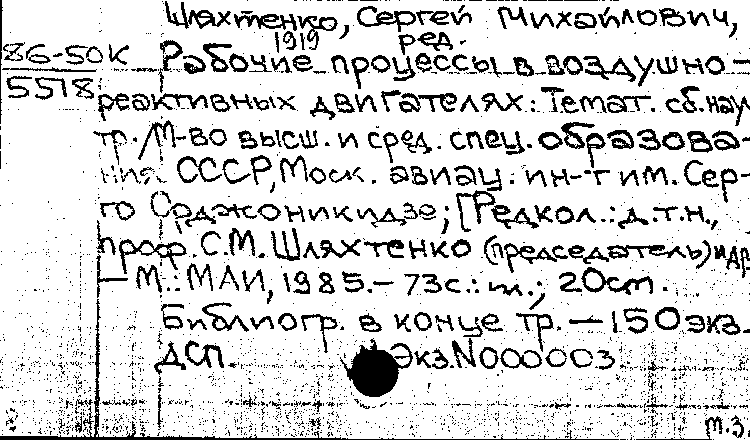 Шляхтенко, Сергей Михайлович,
1919 ред.
86-50К Рабочие процессы в воздушно-
5518 реактивных двигателях: Темат. сб. науч
тр. / М-во высш. и сред. спец. образова-
ния СССР, Моск. авиац. ин-т им. Сер-
го Орджоникидзе; [Редкол.: д.т.н.,
проф. С.М. Шляхтенко (председатель) и др
— М.: МАИ, 1985. — 73с.: ил.; 20cm.
Библиогр. в конце тр. — 150 экз.
ДСП. Экз.N000003
т.3.